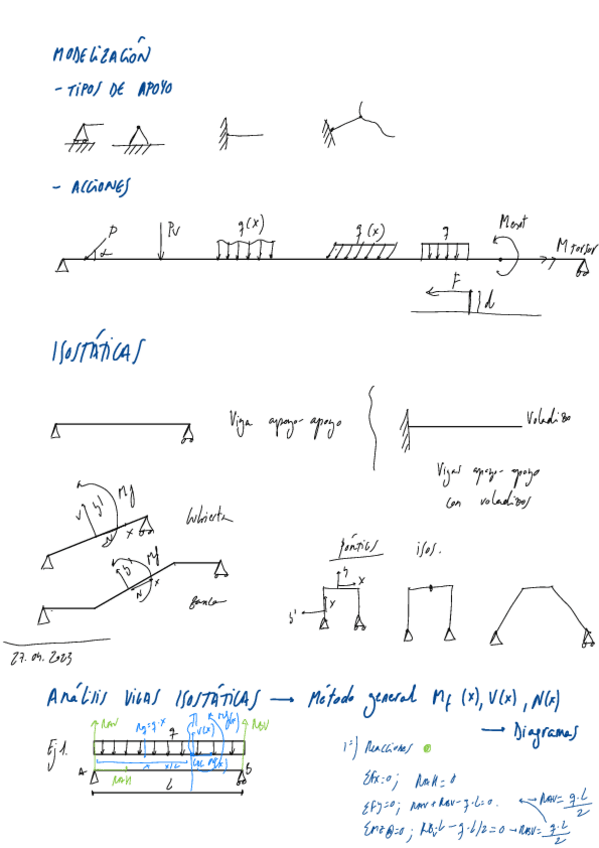 MODELIZACIÓN
- TIPOS DE APOYO
- ACCIONES
P
α
Pv
q(x)
q(x)
q
Mext
M torsor
F
d
ISOSTÁTICAS
Viga apoyo-apoyo
Voladizo
Vigas apoyo-apoyo
con voladizos
V
y'
Mf
N
x
Cubierta
y'
Mf
N
x
Zanca
Pórticos isos.
y
x
y'
x
27.04.2023
Análisis VIGAS ISOSTÁTICAS → Método general Mf (x), V(x), N(x)
→ Diagramas
Ej 1.
RAV
q
V(x)
RBV
x
x/2
A
RAH
B
L
1º) Reacciones
ΣFx=0; RAH=0
ΣFy=0; RAV+RBV-q·L=0. → RAV=q·L/2
ΣMzA=0; RBV·L-q·L·L/2=0 → RBV=q·L/2